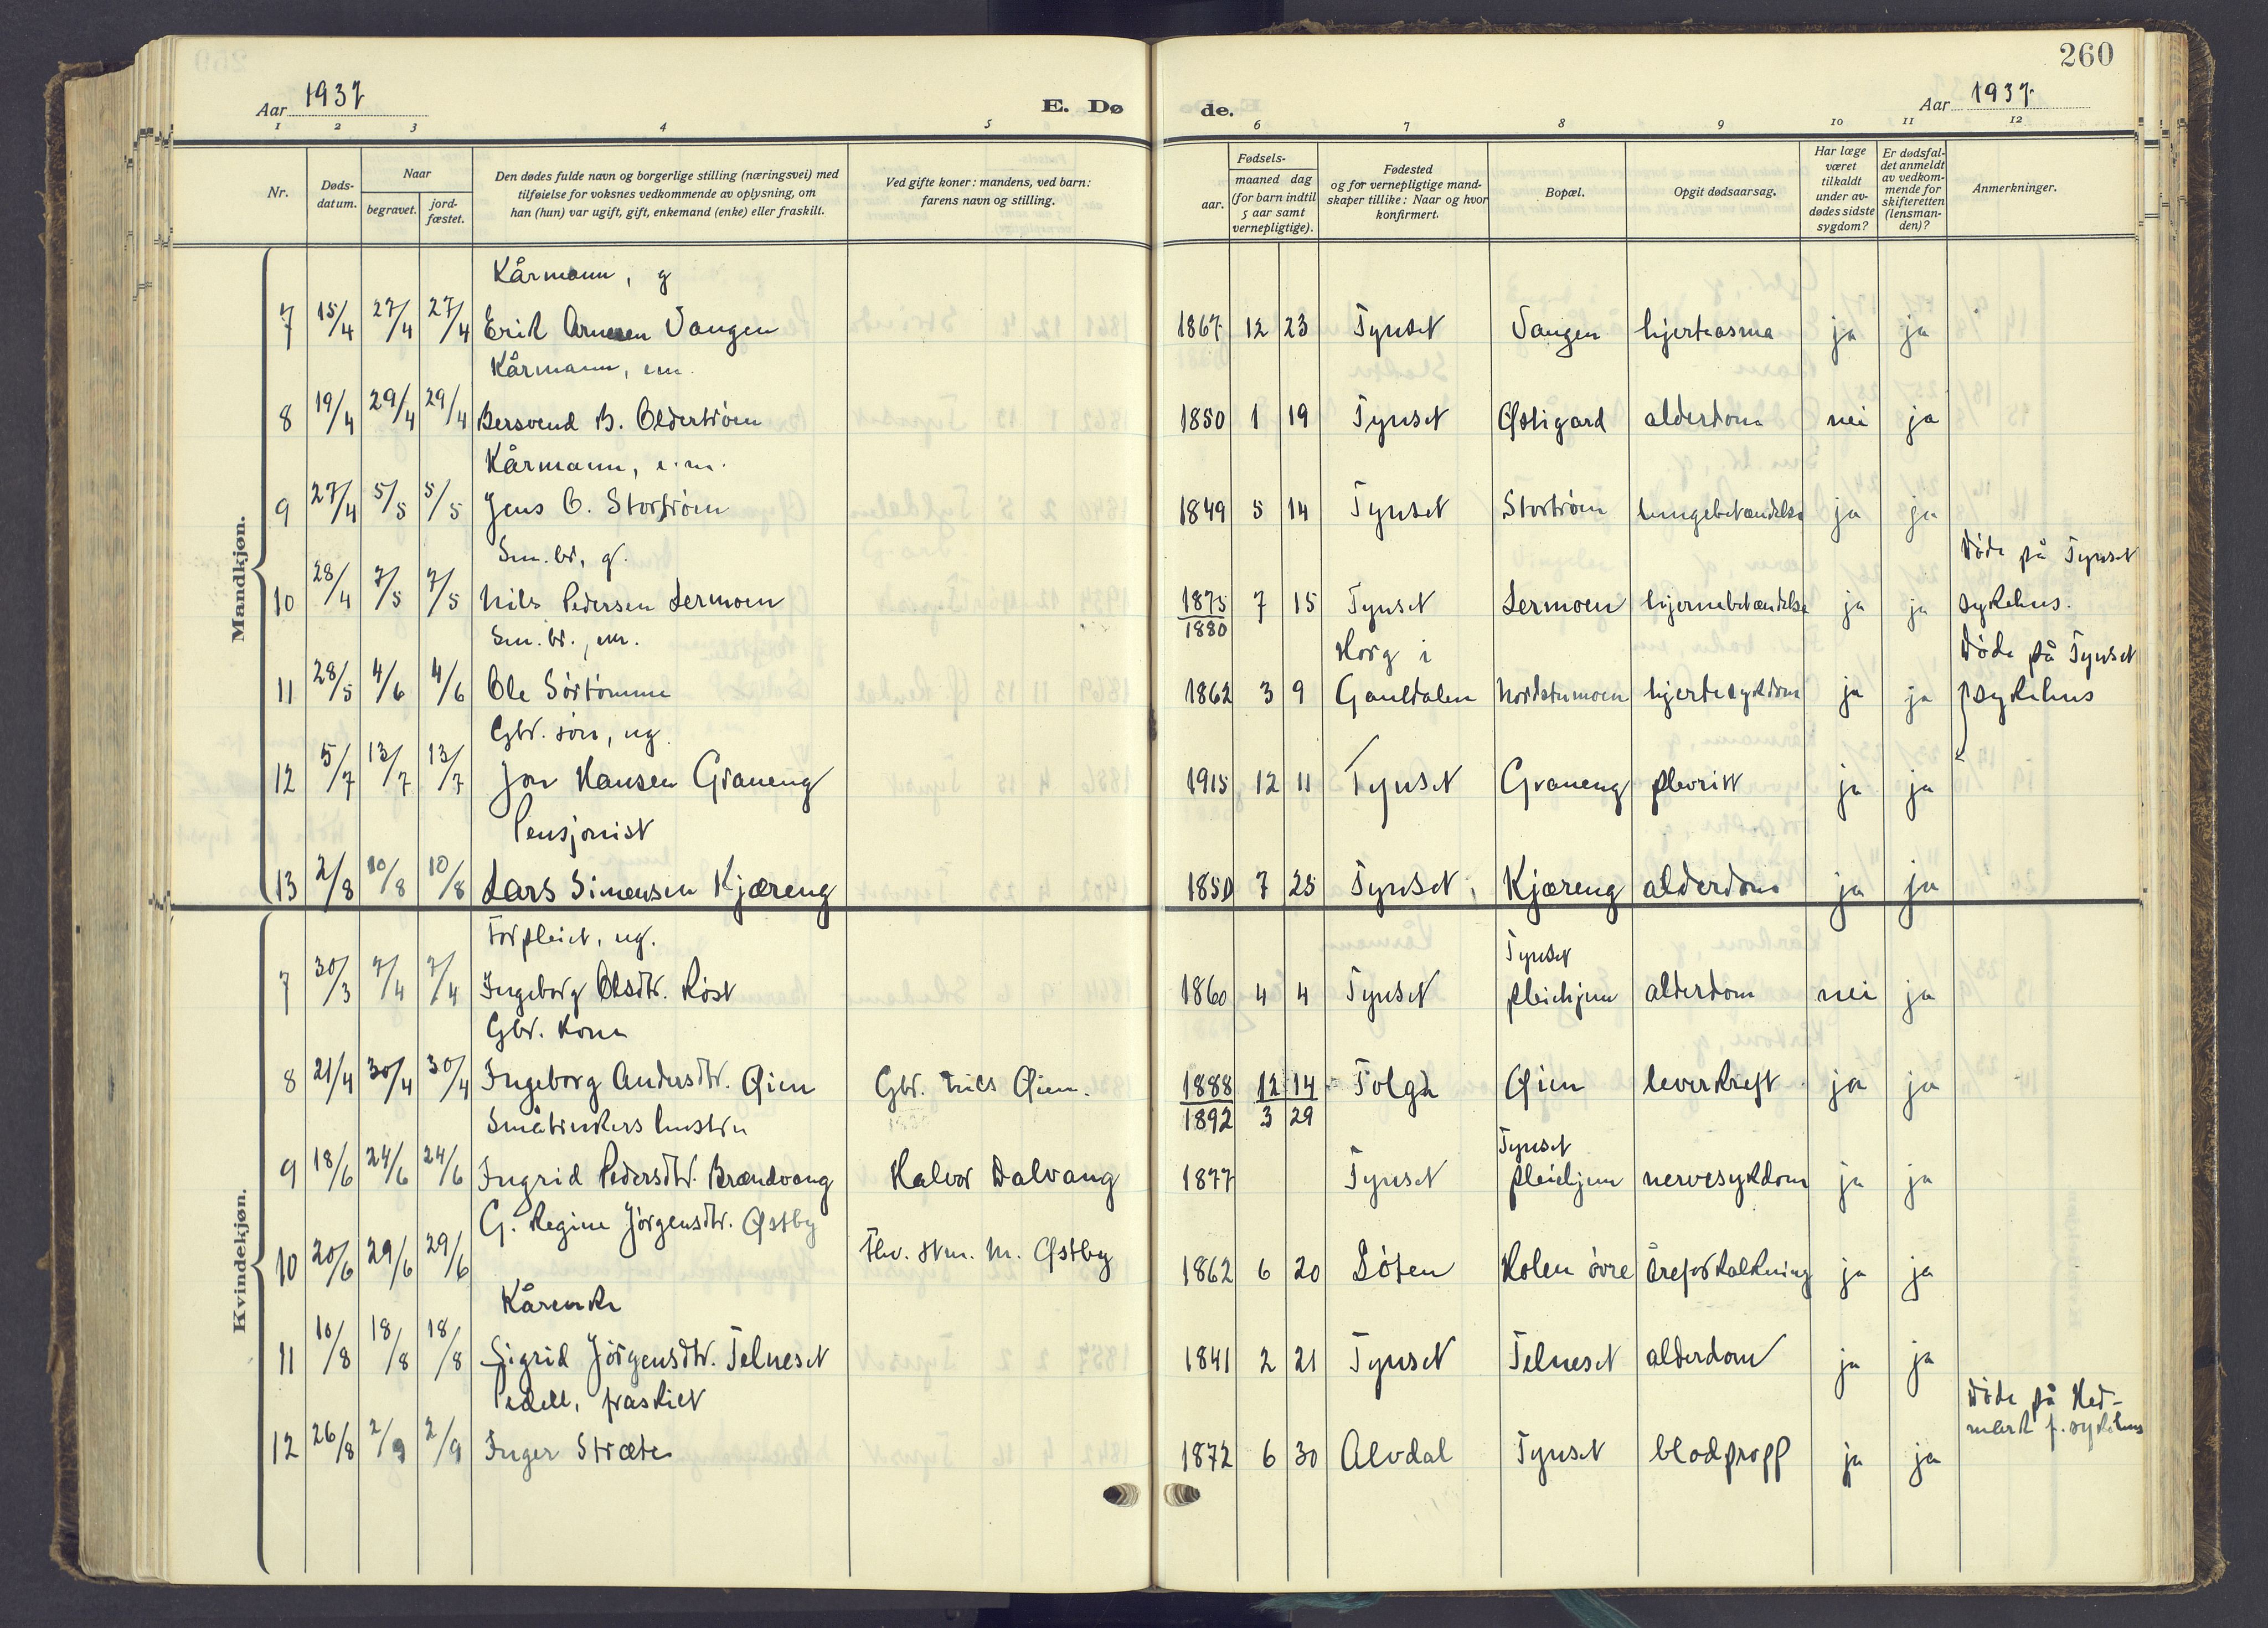 260
Aar 1937 E. Dø de. Aar 1937.
1 2 3 4 5 6 7 8 9 10 11 12
Nr.
Døds-
datum.
Naar
begravet.
jord-
fæstet.
Den dødes fulde navn og borgerlige stilling (næringsvei) med
tilføielse for voksnes vedkommende av oplysning, om
han (hun) var ugift, gift, enkemand (enke) eller fraskilt.
Ved gifte koner: mandens, ved barn:
farens navn og stilling.
Fødsels-
aar.
maaned dag
(for barn indtil
5 aar samt
vernepligtige).
Fødested
og for vernepligtige mand-
skaper tillike: Naar og hvor
konfirmert.
Bopæl.
Opgit dødsaarsag.
Har læge
været
tilkaldt
under av-
dødes sidste
sygdom?
Er dødsfal-
det anmeldt
av vedkom-
mende for
skifteretten
(lensman-
den)?
Anmerkninger.
Mandkjøn.
Kårmann, g
7 15/4 27/4 27/4 Erik Arnesen Vangen 1867 12 23 Tynset Vangen hjerteasma ja ja
Kårmann, em.
8 19/4 29/4 29/4 Bersvend B. Oldertrøen 1850 1 19 Tynset Østigard alderdom nei ja
Kårmann, e.m.
9 27/4 5/5 5/5 Jens O. Stortrøen 1849 5 14 Tynset Stortrøen lungebetændelse ja ja
Sm.br, g.
10 28/4 7/5 7/5 Nils Pedersen Lermoen 1875/1880 7 15 Tynset Lermoen hjernebetændelse ja ja Døde på Tynset
sykehus.
Sm.br., em.
11 28/5 4/6 4/6 Ole Sørtømme 1862 3 9 Horg i
Gauldalen Nordstumoen hjertesykdom ja ja Døde på Tynset
sykehus
Gbr. søn, ug.
12 5/7 13/7 13/7 Jon Hansen Graneng 1915 12 11 Tynset Graneng plevritt ja ja
Pensjonist
13 2/8 10/8 10/8 Lars Simensen Kjæreng 1850 7 25 Tynset, Kjæreng alderdom ja ja
Kvindekjøn.
Forpleiet, ug.
7 30/3 7/4 7/4 Ingeborg Olsdtr. Røst 1860 4 4 Tynset Tynset
pleiehjem alderdom nei ja
Gbr. kone
8 21/4 30/4 30/4 Ingeborg Andersdtr. Øien Gbr. Nils Øien. 1888/1892 12/3 14/29 Tolga Øien leverkreft ja ja
Småbrukers hustru
9 18/6 24/6 24/6 Ingrid Pedersdtr. Brændvang Halvor Dalvang 1877 Tynset Tynset
pleiehjem nervesykdom ja ja
G. Regine Jørgensdtr. Østby
10 20/6 29/6 29/6 Fhv. stm. M. Østby 1862 6 20 Løten Holen øvre Åreforkalkning ja ja
Kårenke
11 10/8 18/8 18/8 Sigrid Jørgensdtr. Telneset 1841 2 21 Tynset Telneset alderdom ja ja
Pedell, fraskilt
12 26/8 2/9 2/9 Inger Stræte 1872 6 30 Alvdal Tynset blodpropp ja ja Døde på Hed-
mark f. sykehus